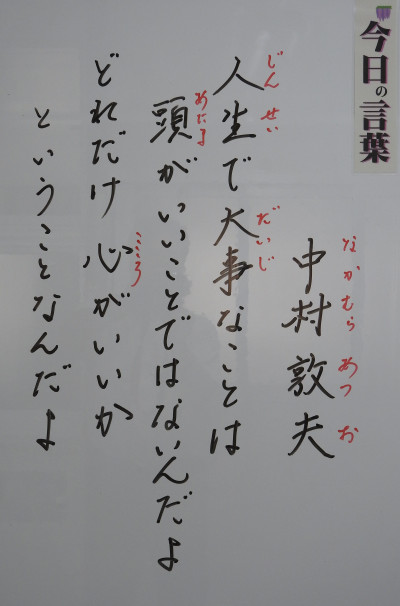 今日の言葉
中村敦夫
なかむら あつ お
人生で大事なことは
じん せい だいじ
頭がいいことではないんだよ
あたま
どれだけ心がいいか
こころ
ということなんだよ